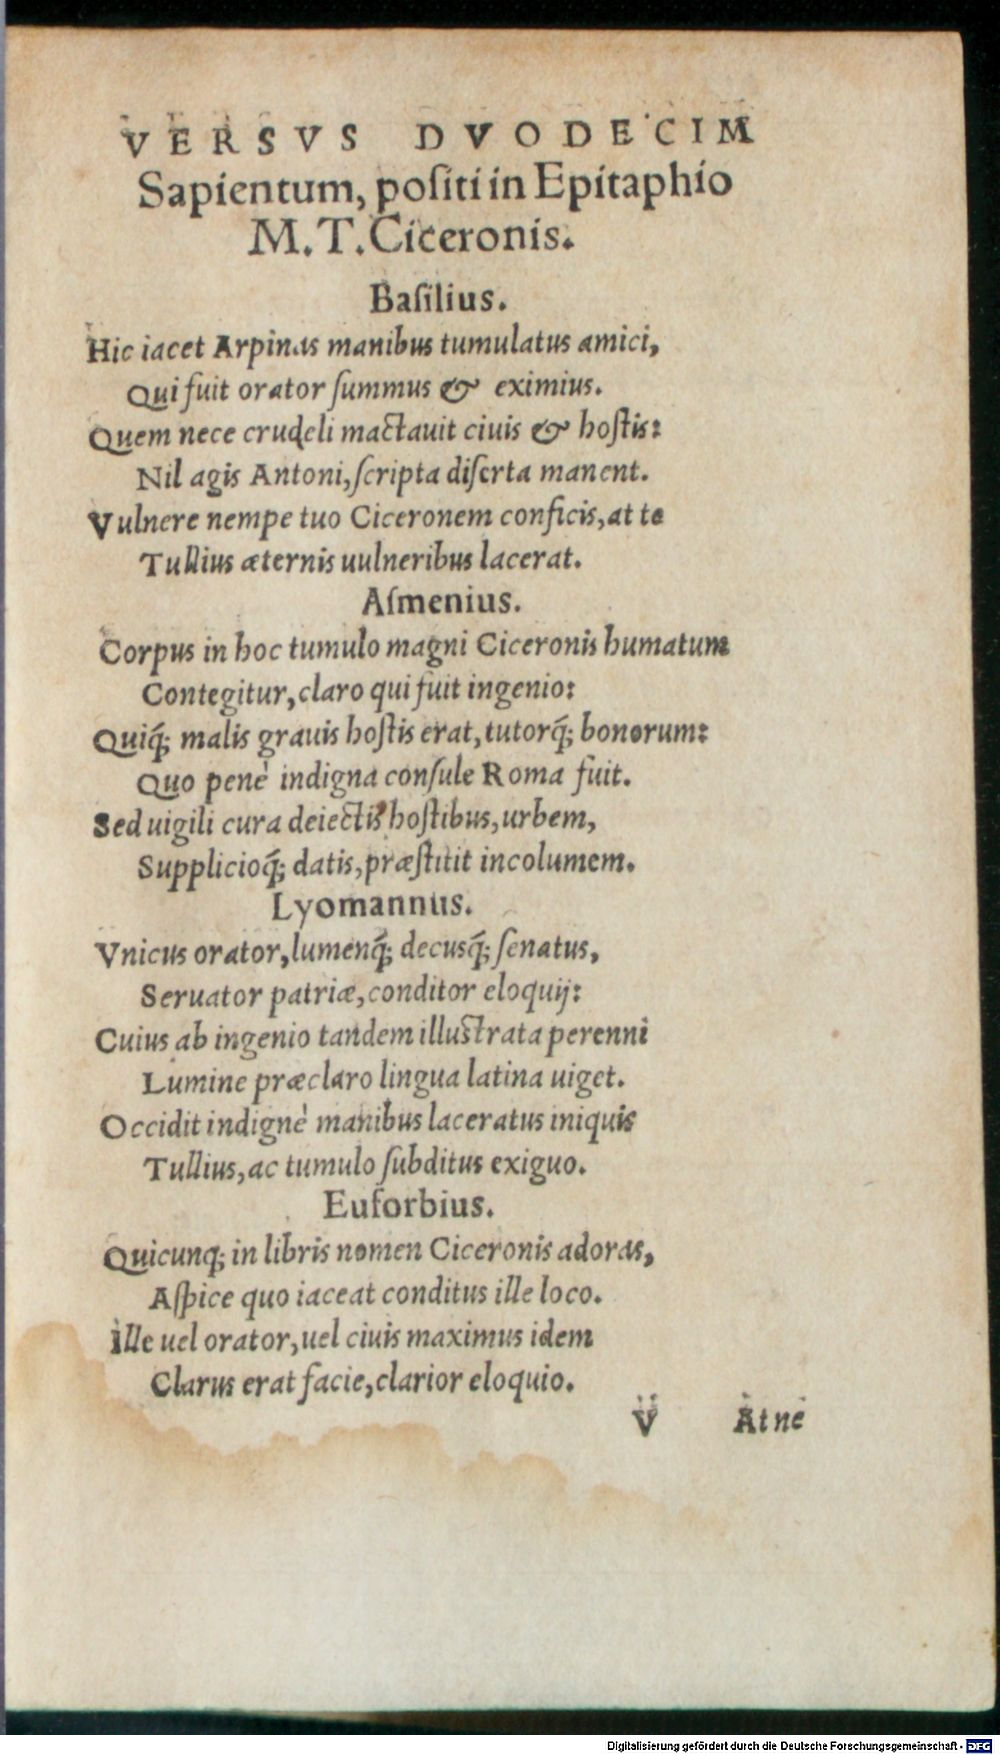 VERSVS DVODECIM
Sapientum, poſiti in Epitaphio
M. T. Ciceronis.
Baſilius.
Hic iacet Arpinas manibus tumulatus amici,
Qui fuit orator ſummus & eximius.
Quem nece crudeli mactauit ciuis & hoſtis:
Nil agis Antoni, ſcripta diſerta manent.
Vulnere nempe tuo Ciceronem conficis, at te
Tullius æternis uulneribus lacerat.
Aſmenius.
Corpus in hoc tumulo magni Ciceronis humatum
Contegitur, claro qui fuit ingenio:
Quiq́; malis grauis hoſtis erat, tutorq́; bonorum:
Quo penè indigna conſule Roma fuit.
Sed uigili cura deiectis hoſtibus, urbem,
Supplicioq́; datis, præſtitit incolumem.
Lyomannus.
Vnicus orator, lumenq́; decusq́; ſenatus,
Seruator patriæ, conditor eloquij:
Cuius ab ingenio tandem illuſtrata perenni
Lumine præclaro lingua latina uiget.
Occidit indignè manibus laceratus iniquis
Tullius, ac tumulo ſubditus exiguo.
Euforbius.
Quicunq; in libris nomen Ciceronis adoras,
Aſpice quo iaceat conditus ille loco.
Ille uel orator, uel ciuis maximus idem
Clarus erat facie, clarior eloquio.
V Atne
Digitalisierung gefördert durch die Deutsche Forschungsgemeinschaft - DFG